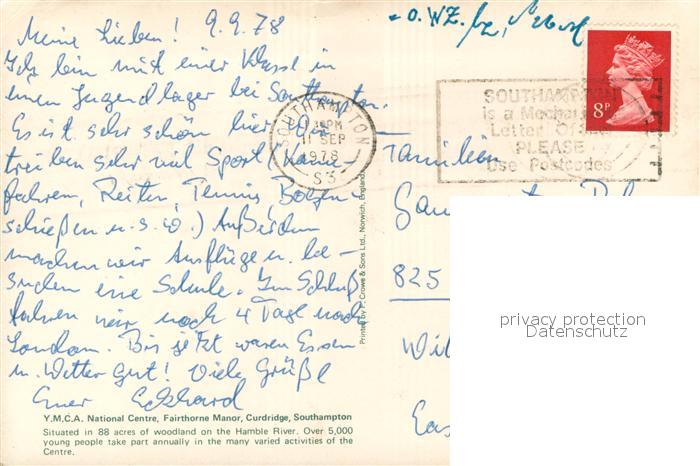 Meine Lieben! 9.9.78
Ich bin mit einer Klasse in
einem Jugendlager bei Southampton.
Es ist sehr schön hier. Wir
treiben sehr viel Sport (Kanu-
fahren, Reiten, Tennis, Bogen-
schießen u.s.w.) Außerdem
machen wir Ausflüge u. be-
suchen eine Schule. Zum Schluß
fahren wir noch 4 Tage nach
London. Bis jetzt waren Essen
u. Wetter gut! Viele Grüße
Euer Eckhard
Y.M.C.A. National Centre, Fairthorne Manor, Curdridge, Southampton
Situated in 88 acres of woodland on the Hamble River. Over 5,000
young people take part annually in the many varied activities of the
Centre.
Printed by J. Crowe & Sons Ltd., Norwich, England
SOUTHAMPTON
PM
11 SEP
1978
S3
SOUTHAMPTON
is a Mechanised
Letter Office
PLEASE
Use Postcodes
8P
Familien
825
privacy protection
Datenschutz